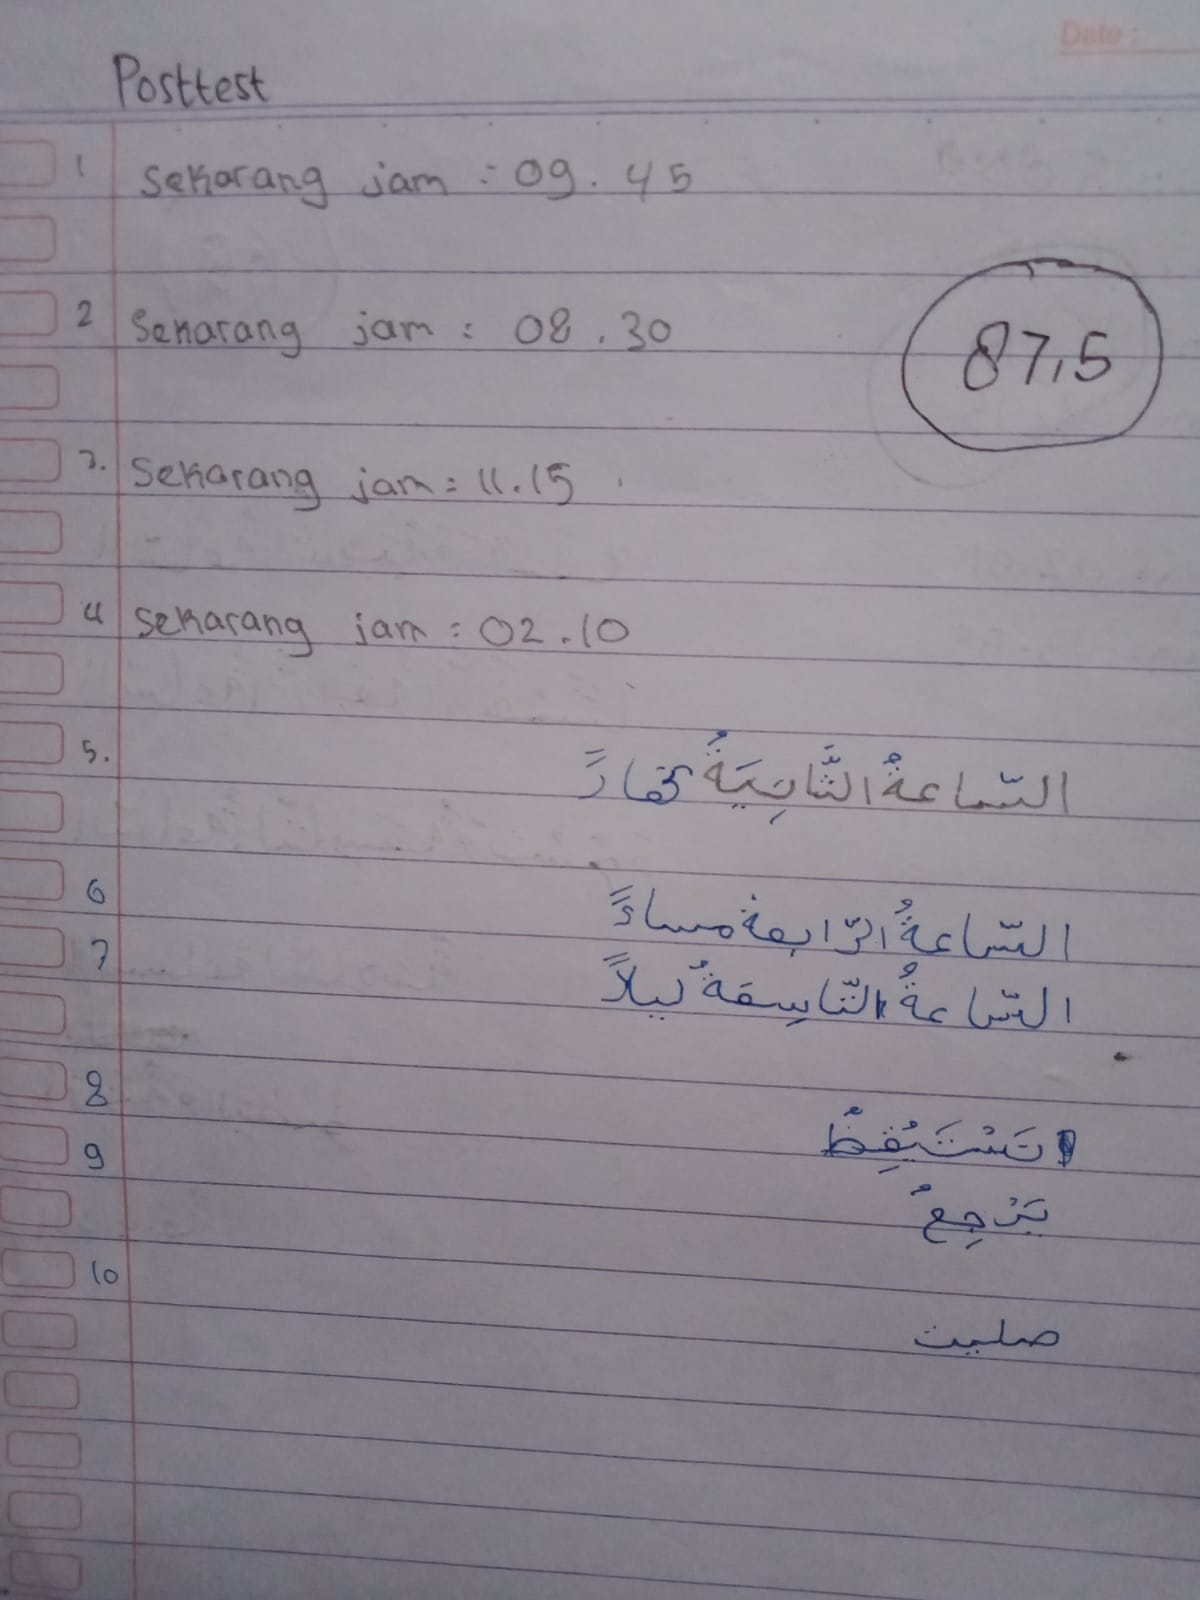 Date :
Posttest
1 Sekarang jam : 09.45
2 Sekarang jam : 08.30
87,5
3. Sekarang jam = 11.15
4 Sekarang jam : 02.10
5. السّاعةُ الثَّانِيَةُ نهارً
6 السّاعةُ الرّابعة مساءً
7 السّاعةُ التّاسِعَةُ ليلاً
8 تَسْتَيْقِظُ
9 تَرْجِعُ
10
صليت